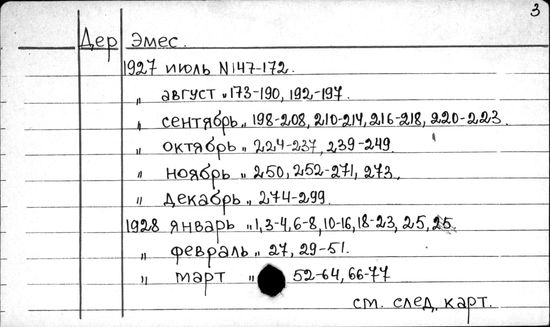 3
Дер Эмес.
1927 июль N 147-172.
" август " 173-190, 192-197.
" сентябрь " 198-208, 210-214, 216-218, 220-223.
" октябрь " 224-237, 239-249.
" ноябрь " 250, 252-271, 273.
" декабрь " 274-299.
1928 январь " 1, 3-4, 6-8, 10-16, 18-23, 25, 25.
" февраль " 27, 29-51.
" март " 52-64, 66-77
см. след. карт.